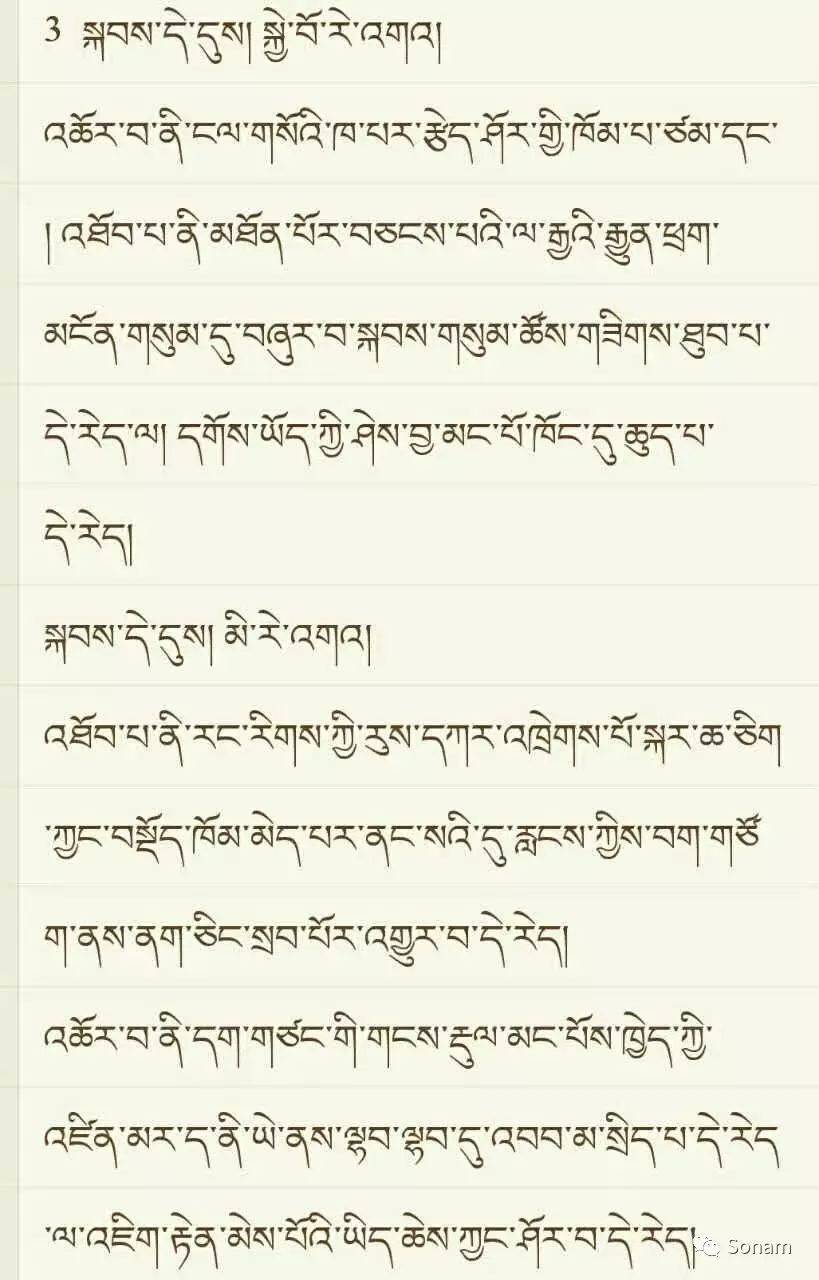 3 སྐབས་དེ་དུས། སྐྱེ་བོ་རེ་འགའ།
འཆོར་བ་ནི་ངལ་གསོའི་ཁ་པར་རྩེད་ཤོར་གྱི་ཁོམ་པ་ཙམ་དང་
། འཐོབ་པ་ནི་མཐོན་པོར་བཅངས་པའི་ལ་རྒྱའི་རྒྱུན་ཕྲག་
མངོན་གསུམ་དུ་བཞུར་བ་སྐབས་གསུམ་ཚོས་གཟིགས་ཐུབ་པ་
དེ་རེད་ལ། དགོས་ཡོད་ཀྱི་ཤེས་བྱ་མང་པོ་ཁོང་དུ་ཆུད་པ་
དེ་རེད།
སྐབས་དེ་དུས། མི་རེ་འགའ།
འཐོབ་པ་ནི་རང་རིགས་ཀྱི་རུས་དཀར་འཁྲེགས་པོ་སྐར་ཆ་ཅིག
་ཀྱང་བསྡོད་ཁོམ་མེད་པར་ནང་སའི་དུ་རླངས་ཀྱིས་བག་གཙོ
ག་ནས་ནག་ཅིང་སྲབ་པོར་འགྱུར་བ་དེ་རེད།
འཆོར་བ་ནི་དག་གཙང་གི་གངས་རྡུལ་མང་པོས་ཁྱེད་ཀྱི་
འཛིན་མར་ད་ནི་ཡེ་ནས་ལྷབ་ལྷབ་དུ་འབབ་མ་སྲིད་པ་དེ་རེད
་ལ་འཇིག་རྟེན་མེས་པོའི་ཡིད་ཆེས་ཀྱང་ཤོར་བ་དེ་རེད།
Sonam